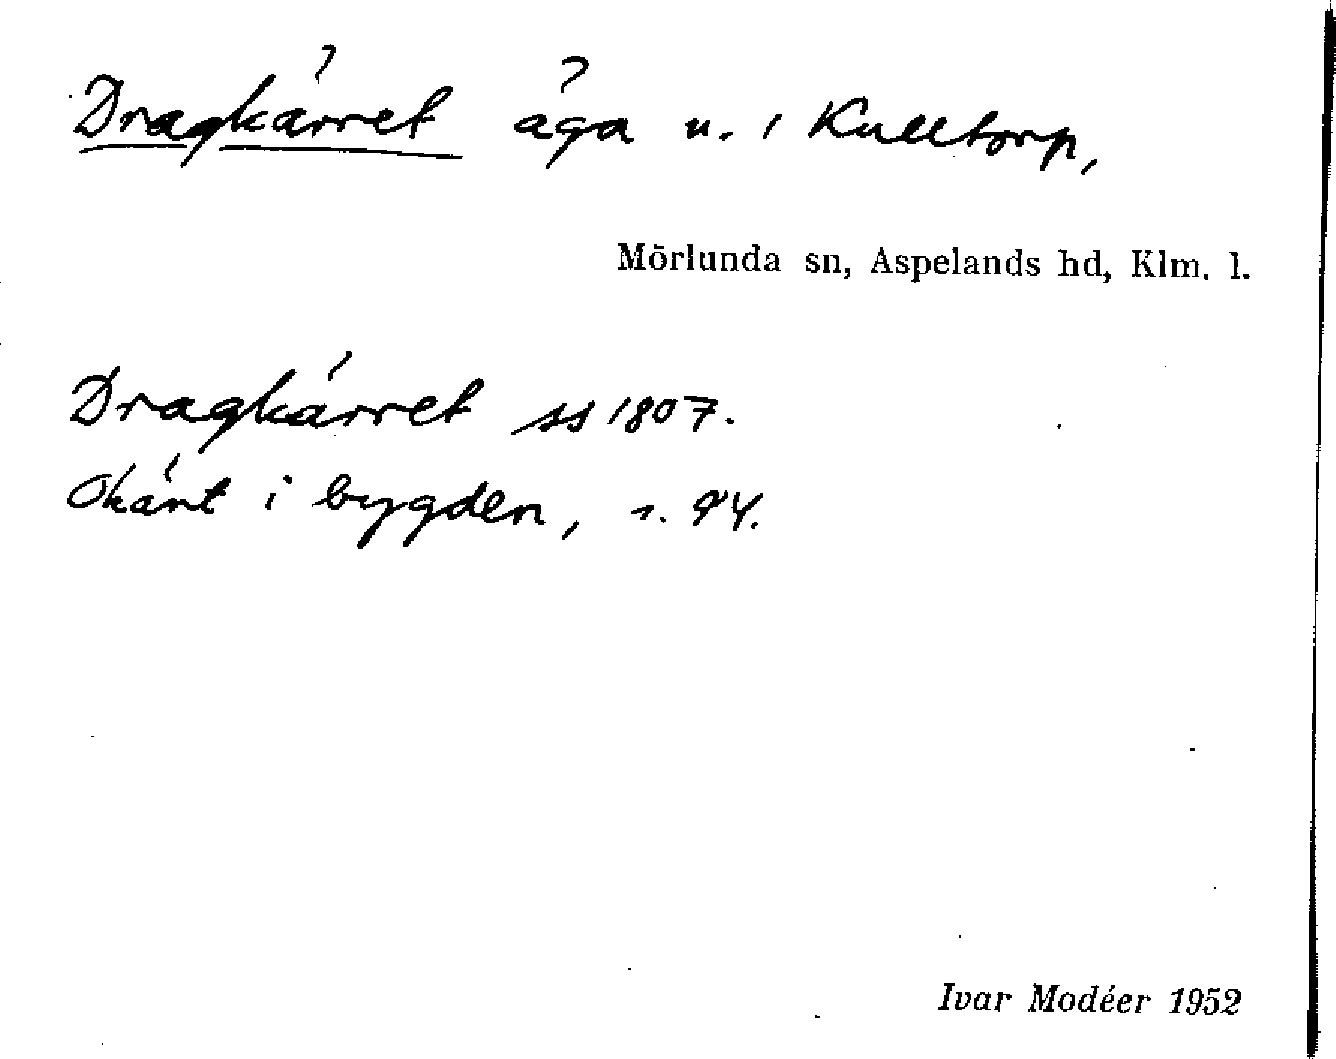 Dragkärret äga u. i Kulltorp,
Mörlunda sn, Aspelands hd, Klm. l.
Dragkärret ss 1807.
Okänt i bygden, s. 94.
Ivar Modéer 1952